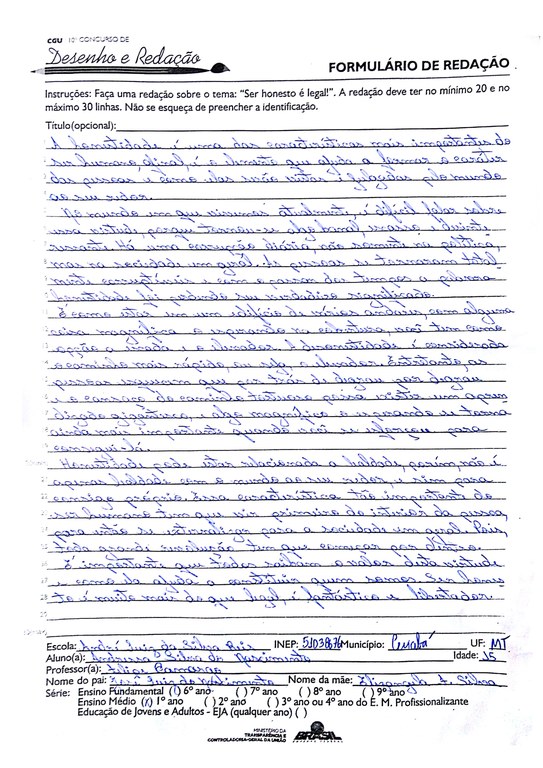 CGU 10º CONCURSO DE
Desenho e Redação
FORMULÁRIO DE REDAÇÃO
Instruções: Faça uma redação sobre o tema: “Ser honesto é legal!”. A redação deve ter no mínimo 20 e no
máximo 30 linhas. Não se esqueça de preencher a identificação.
Título(opcional):
A honestidade é uma das características mais importantes do
ser humano afinal, é o elemento que ajuda a formar o caráter
das pessoas e como elas serão vistas e julgadas pelo mundo
ao seu redor.
No mundo em que vivemos atualmente, é difícil falar sobre
essa virtude, porque tornou-se algo tal, escassa
Há uma corrupção diária, não somente na política,
mas na sociedade em geral. As pessoas se tornaram total
mente corruptíveis e com o passar do tempo a palavra
honestidade foi perdendo seu verdadeiro significado.
É como estar em um edifício de vários andares, com alguma
coisa magnífica o esperando na cobertura, você tem como
opção a escada e o elevador. A desonestidade é considerada
o caminho mais rápido, ou seja, o elevador. Entretanto, as
pessoas esquecem que por trás de degrau por degrau
e o cansaço do caminho tortuoso possa existir um apren
dizado gigantesco, e algo magnífico o esperando se torna
ainda mais importante quando você se esforçou para
consegui-lo.
Honestidade pode estar relacionada a lealdade, porém, não é
apenas lealdade com o mundo ao seu redor, e sim para
consigo próprio. Essa característica tão importante do
ser humano tem que vir primeiro do interior da pessoa,
para então se externalizar para a sociedade em geral. Pois,
toda grande revolução tem que começar por dentro.
É importante que todos saibam o valor desta virtude
e como ela ajuda a constituir quem somos. Ser hones
to é muito mais do que legal, é fantástico e libertador.
Escola: André Luiz da Silva Reis INEP: Município: Cuiabá UF: MT
Aluno(a): Silva do Nascimento Idade: 15
Professor(a): Camargo
Nome do pai: José Luiz do Nascimento Nome da mãe: Elizangela A. Silva
Série: Ensino Fundamental ( ) 6º ano ( ) 7º ano ( ) 8º ano ( ) 9º ano
Ensino Médio (x) 1º ano ( ) 2º ano ( ) 3º ano ou 4º ano do E. M. Profissionalizante
Educação de Jovens e Adultos - EJA (qualquer ano) ( )
MINISTÉRIO DA
TRANSPARÊNCIA E
CONTROLADORIA-GERAL DA UNIÃO
BRASIL